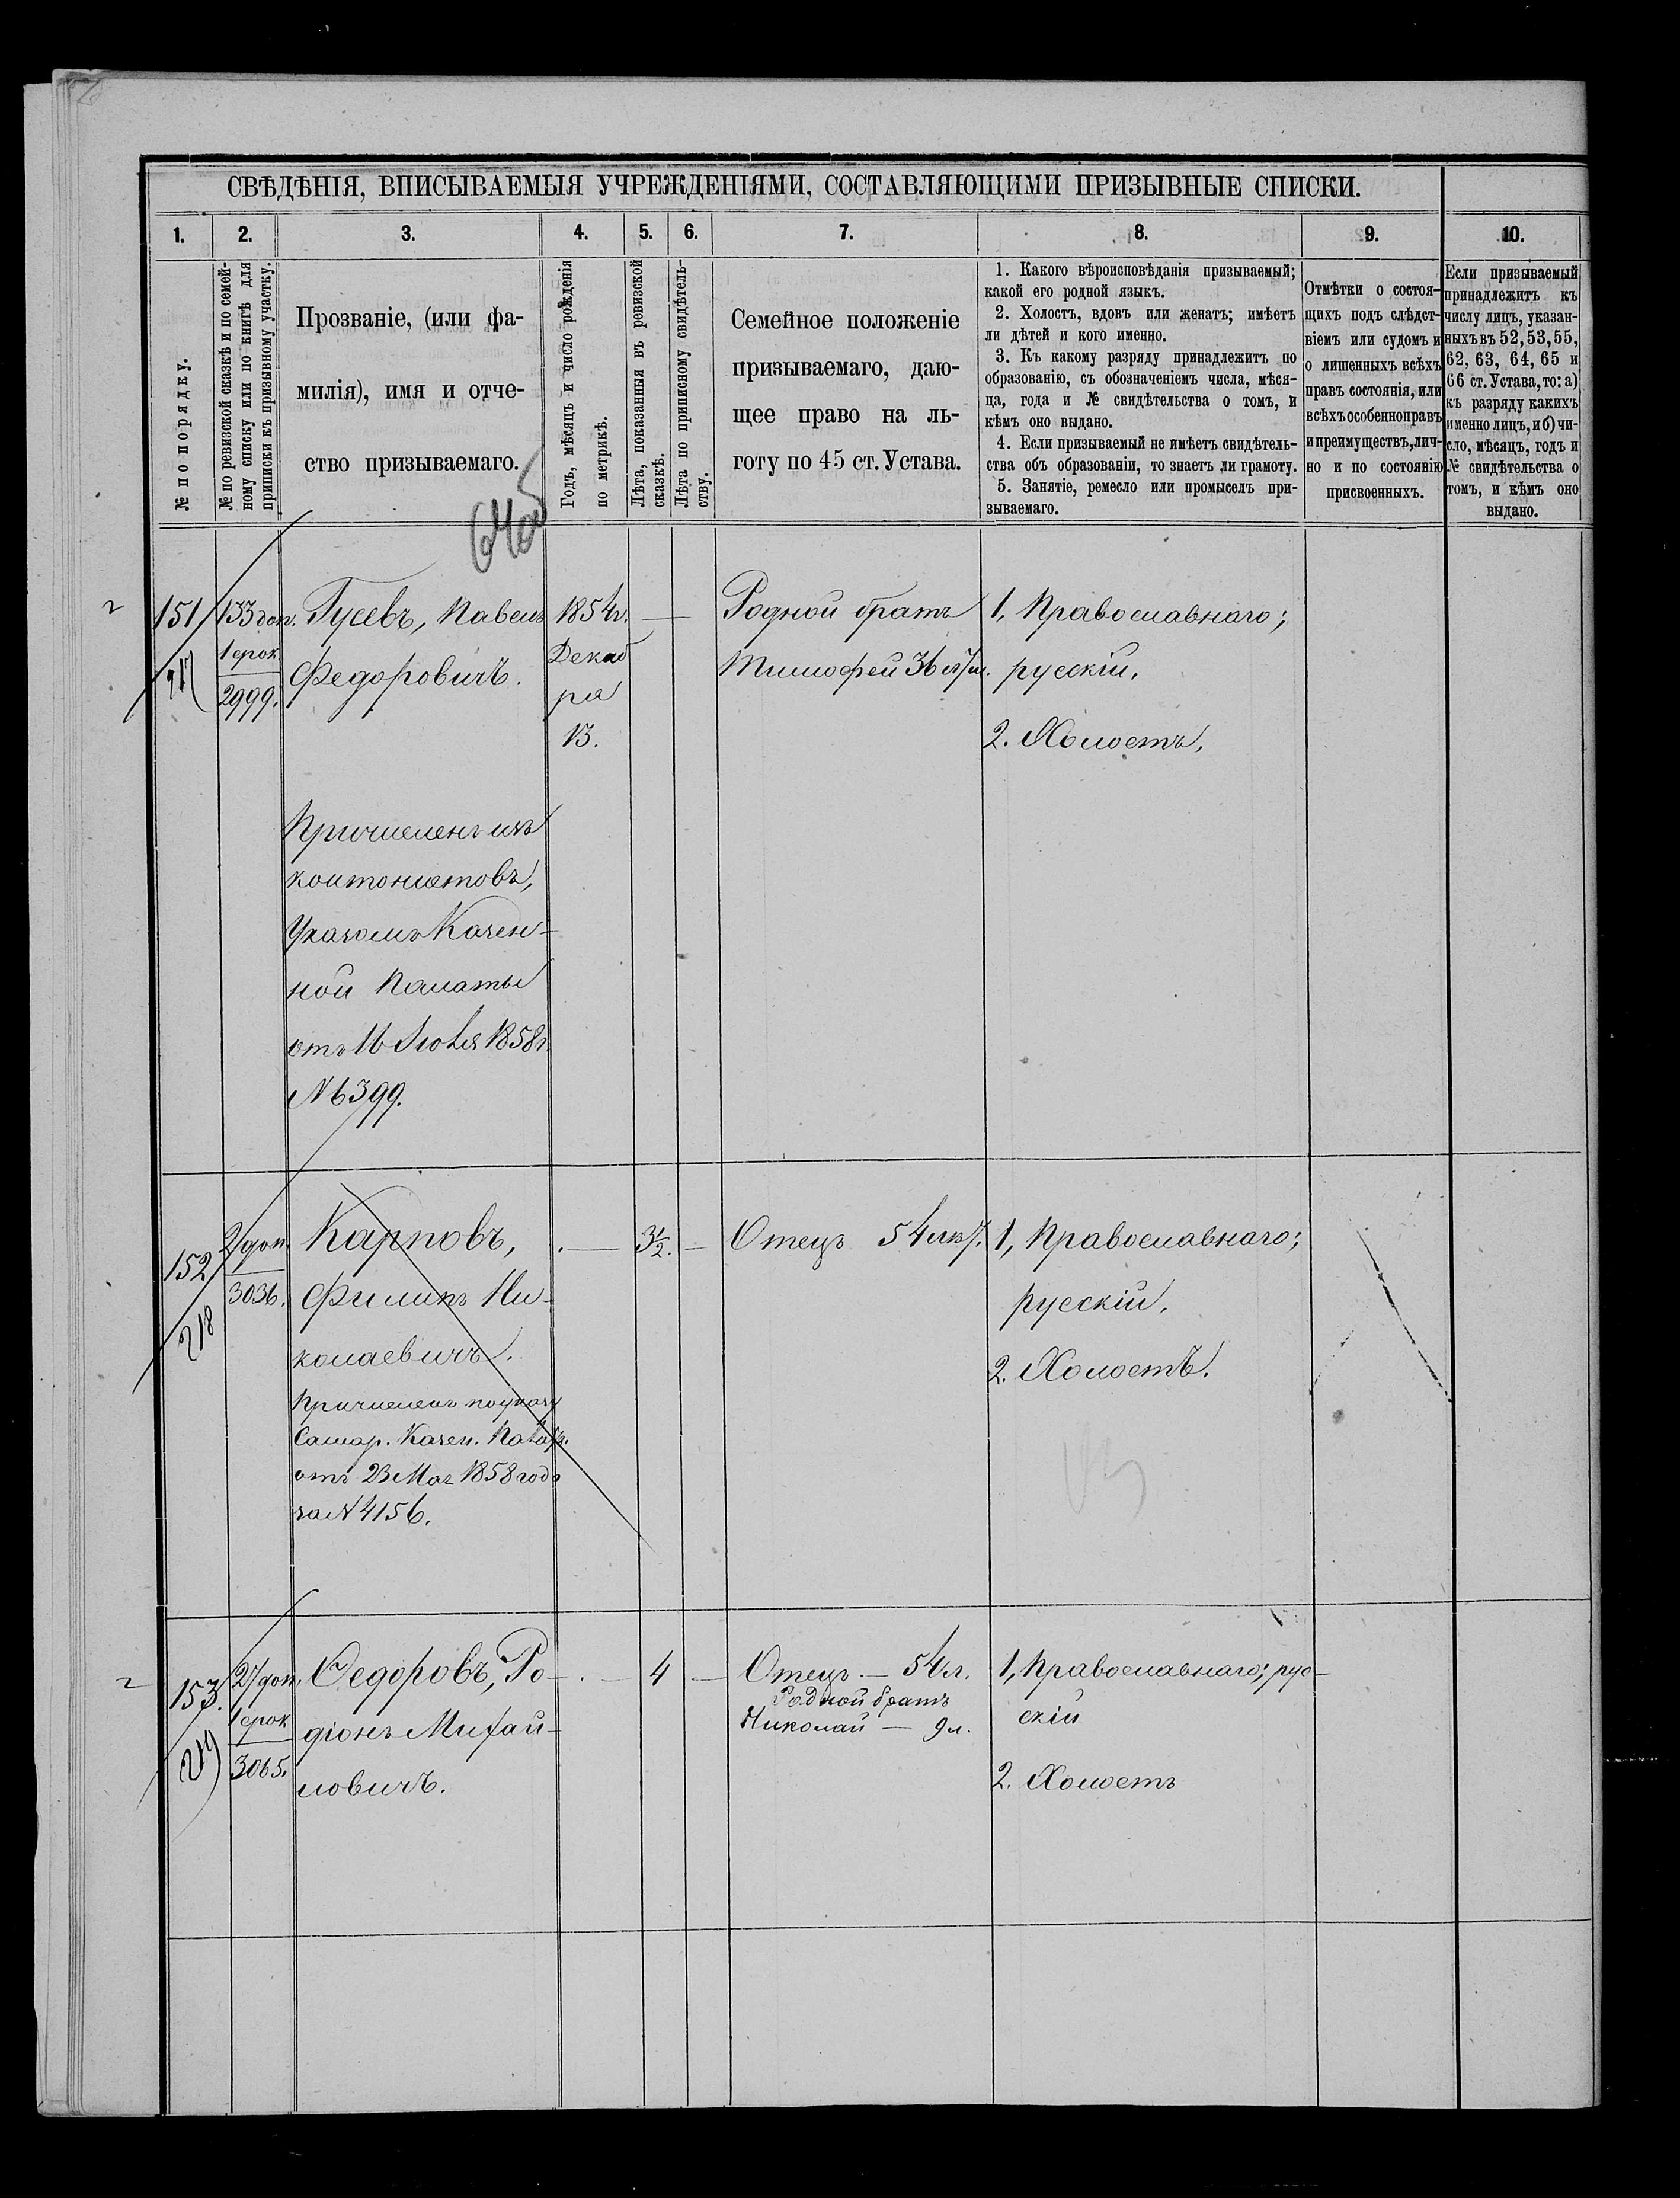 СВѢДѢНІЯ, ВПИСЫВАЕМЫЯ УЧРЕЖДЕНІЯМИ, СОСТАВЛЯЮЩИМИ ПРИЗЫВНЫЕ СПИСКИ.
1. 2. 3. 4. 5. 6. 7. 8. 9. 10.
№ по порядку.
№ по ревизской сказкѣ и по семей-
ному списку или по книгѣ для
приписки къ призывному участку.
Прозваніе, (или фа-
милія), имя и отче-
ство призываемаго.
Годъ, мѣсяцъ и число рожденія
по метрикѣ.
Лѣта, показанныя въ ревизской
сказкѣ.
Лѣта по приписному свидѣтель-
ству.
Семейное положеніе
призываемаго, даю-
щее право на ль-
готу по 45 ст. Устава.
1. Какого вѣроисповѣданія призываемый;
какой его родной языкъ.
2. Холостъ, вдовъ или женатъ; имѣетъ
ли дѣтей и кого именно.
3. Къ какому разряду принадлежитъ по
образованію, съ обозначеніемъ числа, мѣся-
ца, года и № свидѣтельства о томъ, и
кѣмъ оно выдано.
4. Если призываемый не имѣетъ свидѣтель-
ства объ образованіи, то знаетъ ли грамоту.
5. Занятіе, ремесло или промыселъ при-
зываемаго.
Отмѣтки о состоя-
щихъ подъ слѣдст-
віемъ или судомъ и
о лишенныхъ всѣхъ
правъ состоянія, или
всѣхъ особенно правъ
и преимуществъ, лич-
но и по состоянію
присвоенныхъ.
Если призываемый
принадлежитъ къ
числу лицъ, указан-
ныхъ въ 52, 53, 55,
62, 63, 64, 65 и
66 ст. Устава, то: а)
къ разряду какихъ
именно лицъ, и б) чи-
сло, мѣсяцъ, годъ и
№ свидѣтельства о
томъ, и кѣмъ оно
выдано.
151
217
133 доп.
1 срок
2999.
Гусевъ, Павелъ
Федоровичъ.
1854г.
Декаб
ря
13.
Родной братъ
Тимофей 36 лѣт.
1, Православнаго;
русскій.
2. Холостъ.
Причисленъ изъ
кантонистовъ,
Указомъ Казен-
ной Палаты
отъ 16 Іюля 1858г.
№ 6399.
152
218
2/доп
3036.
Карповъ,
Филипъ Ни-
колаевичъ.
3½.
Отецъ 54 лѣт.
1, Православнаго;
русскій.
2. Холостъ.
Причисленъ по указу
Самар. Казен. Палат.
отъ 23 Мая 1858 года
за № 4156.
153.
219
27/доп.
1 срок
3065.
Федоровъ, Ро-
діонъ Михай-
ловичъ.
4
Отецъ — 54 л.
Родной братъ
Николай — 9 л.
1, Православнаго; рус-
скій
2. Холостъ